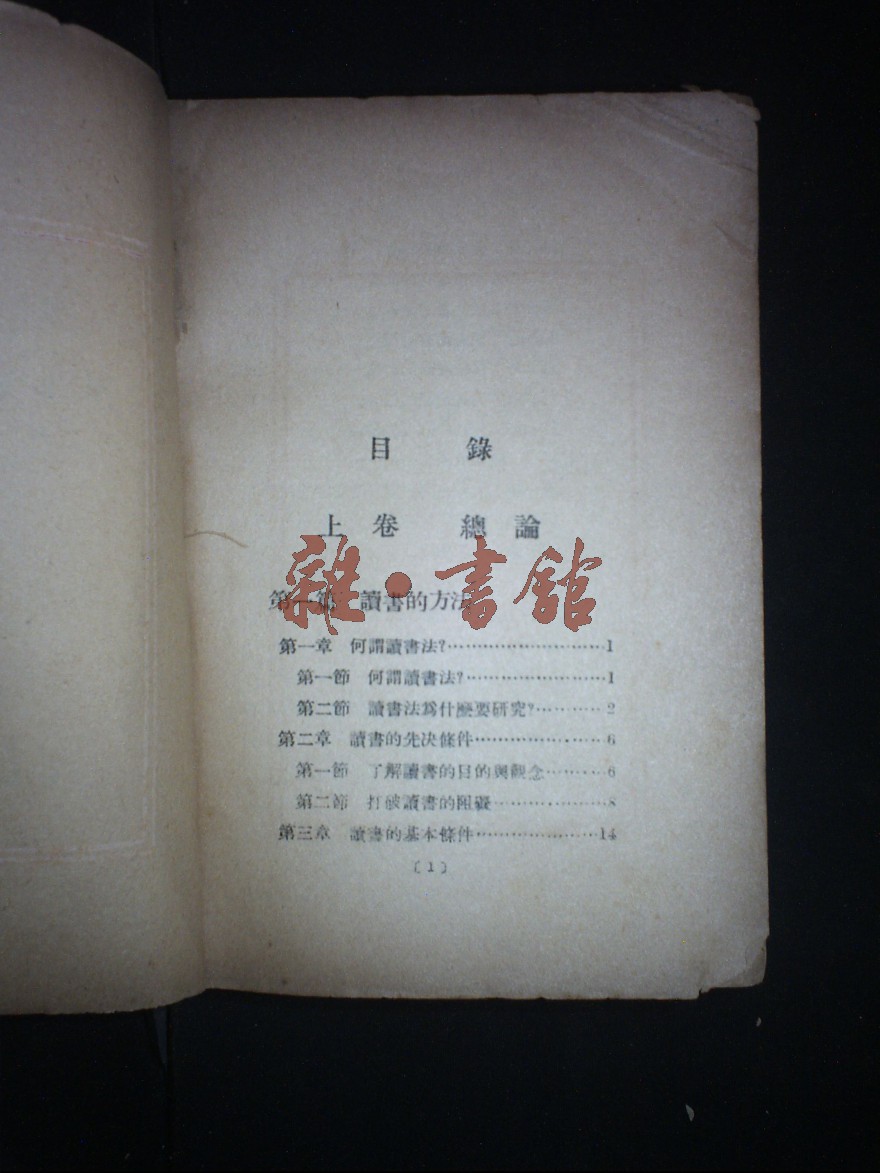 目 錄
上卷 總論
雜·書舘
第一篇 讀書的方法
第一章 何謂讀書法?………………………1
第一節 何謂讀書法?……………………1
第二節 讀書法爲什麽要研究?…………2
第二章 讀書的先決條件……………………6
第一節 了解讀書的目的與觀念………6
第二節 打破讀書的阻礙………………8
第三章 讀書的基本條件…………………14
〔1〕